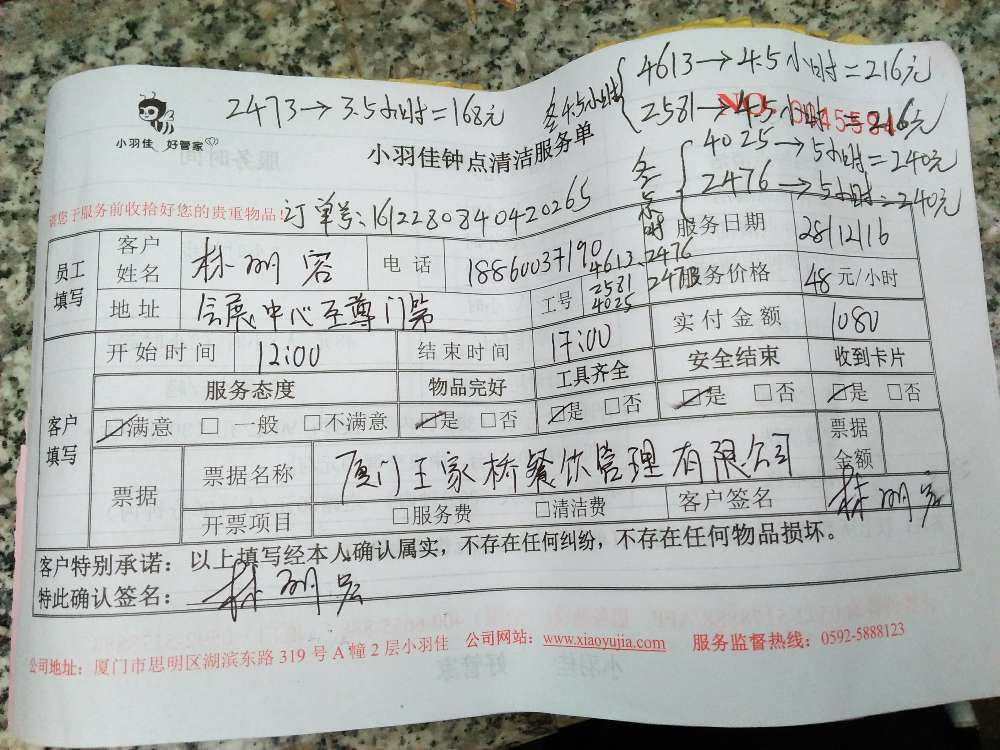 2473→3.5小时=168元
各4.5小时
4613→4.5小时=216元
2581→4.5小时=216元
NO.
各5小时
4025→5小时=240元
2476→5小时=240元
小羽佳 好管家
小羽佳钟点清洁服务单
请您于服务前收拾好您的贵重物品！
订单号:161228084042026​5
员工填写
客户姓名
林明容
电话
18860037190
服务日期
28/12/16
地址
会展中心至尊门第
工号
4613 2476
2581 2473
4025
服务价格
48 元/小时
实付金额
1080
客户填写
开始时间
12:00
结束时间
17:00
安全结束
收到卡片
服务态度
物品完好
工具齐全
☑满意 □一般 □不满意
☑是 □否
☑是 □否
☑是 □否
☑是 □否
票据
票据名称
厦门王家桥餐饮管理有限公司
票据金额
开票项目
□服务费 □清洁费
客户签名
林明容
客户特别承诺：以上填写经本人确认属实，不存在任何纠纷，不存在任何物品损坏。
特此确认签名：林明容
公司地址：厦门市思明区湖滨东路 319 号 A 幢 2 层小羽佳 公司网站：www.xiaoyujia.com 服务监督热线：0592-5888123